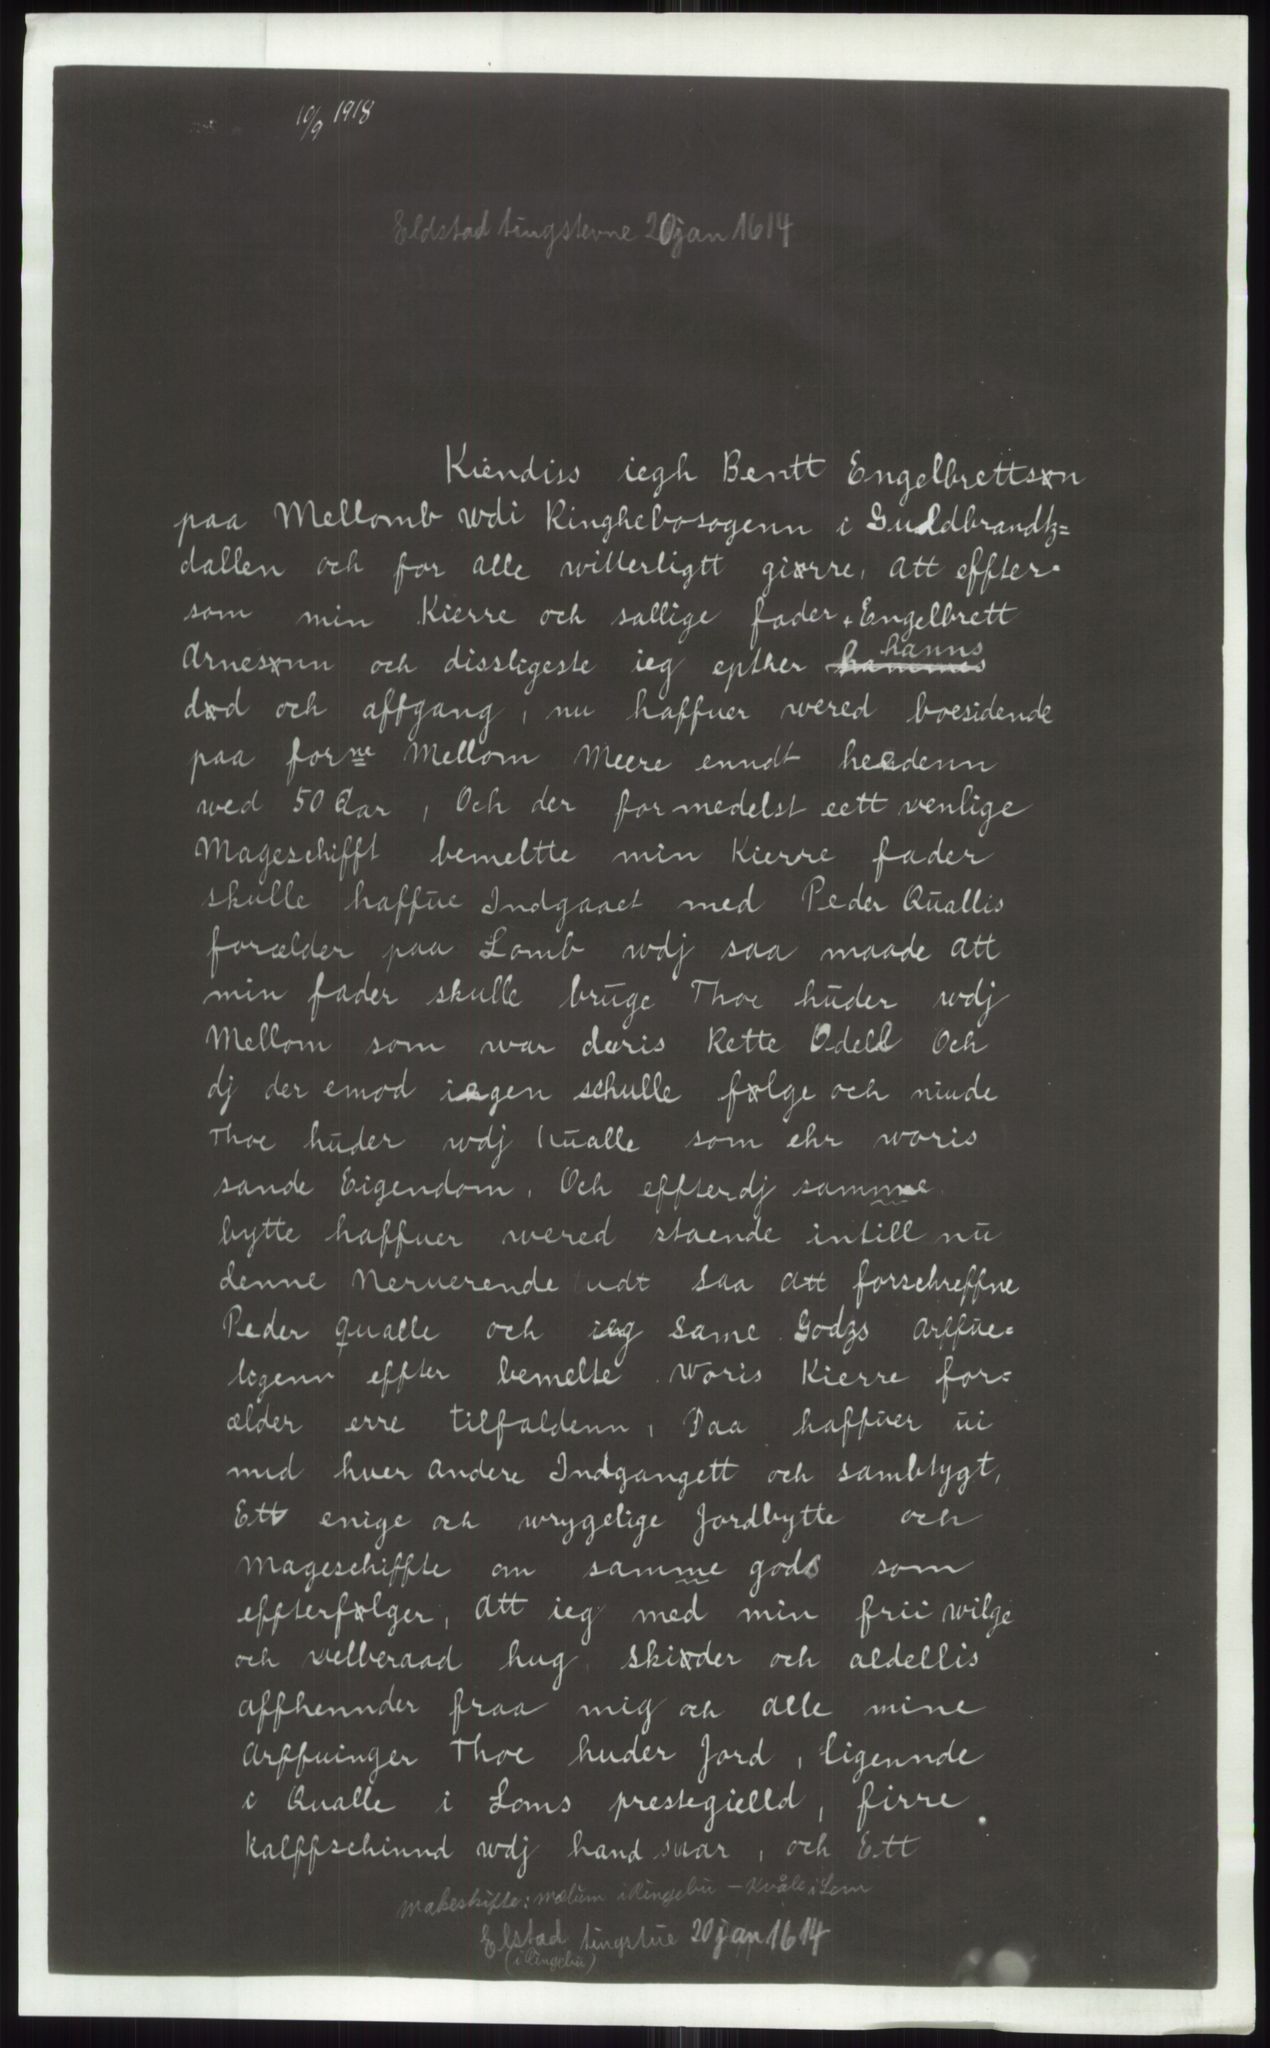 10/9 1918
Eldstad tingstevne 20 jan 1614
Kiendiss iegh Bentt Engelbrettsøn
paa Mellomb wdi Ringhebosogenn i Guldbrandtz=
dallen och for alle witterligtt giørre, att effter-
som min Kierre och sallige fader, Engelbrett
Arnesønn och dissligeste ieg epther hanns
død och affgang, nu haffuer wered boesidende
paa forne Mellom Meere enndt heedenn
wed 50 Aar, Och der formedelst eett venlige
Mageschifft bemeltte min Kierre fader
skulle haffue Indgaaet med Peder Quallis
forælder paa Lomb wdj saa maade att
min fader skulle bruge Thoe huder wdj
Mellom som war deris Rette Odell Och
dj der emod iegen schulle følge och niude
Thoe huder wdj Kualle som ehr woris
sande Eigendom. Och effterdj samme
bytte haffuer wered staende intill nu
denne Neruerende tidt saa att forschreffne
Peder Qualle och ieg same Godzs arffue-
ligenn effter bemelte woris Kierre for=
ælder erre tilfaldenn, Daa haffuer ui
med huer andere Indgangett och sambtygt,
Ett enige och wrygelige Jordbytte och
Mageschiffte om samme gods som
effterfølger, att ieg med min frii wilge
och velberaad hug skiøder och aldellis
affhennder fraa mig och alle mine
Arffuinger Thoe huder Jord, ligennde
i Qualle i Loms prestegielld, firre
Kalffschinnd wdj hand suar, och Ett
Makeskifte: Mælum i Ringebu – Kvåle i Lom
Elstad tingstue 20 jan 1614
(i Ringebu)